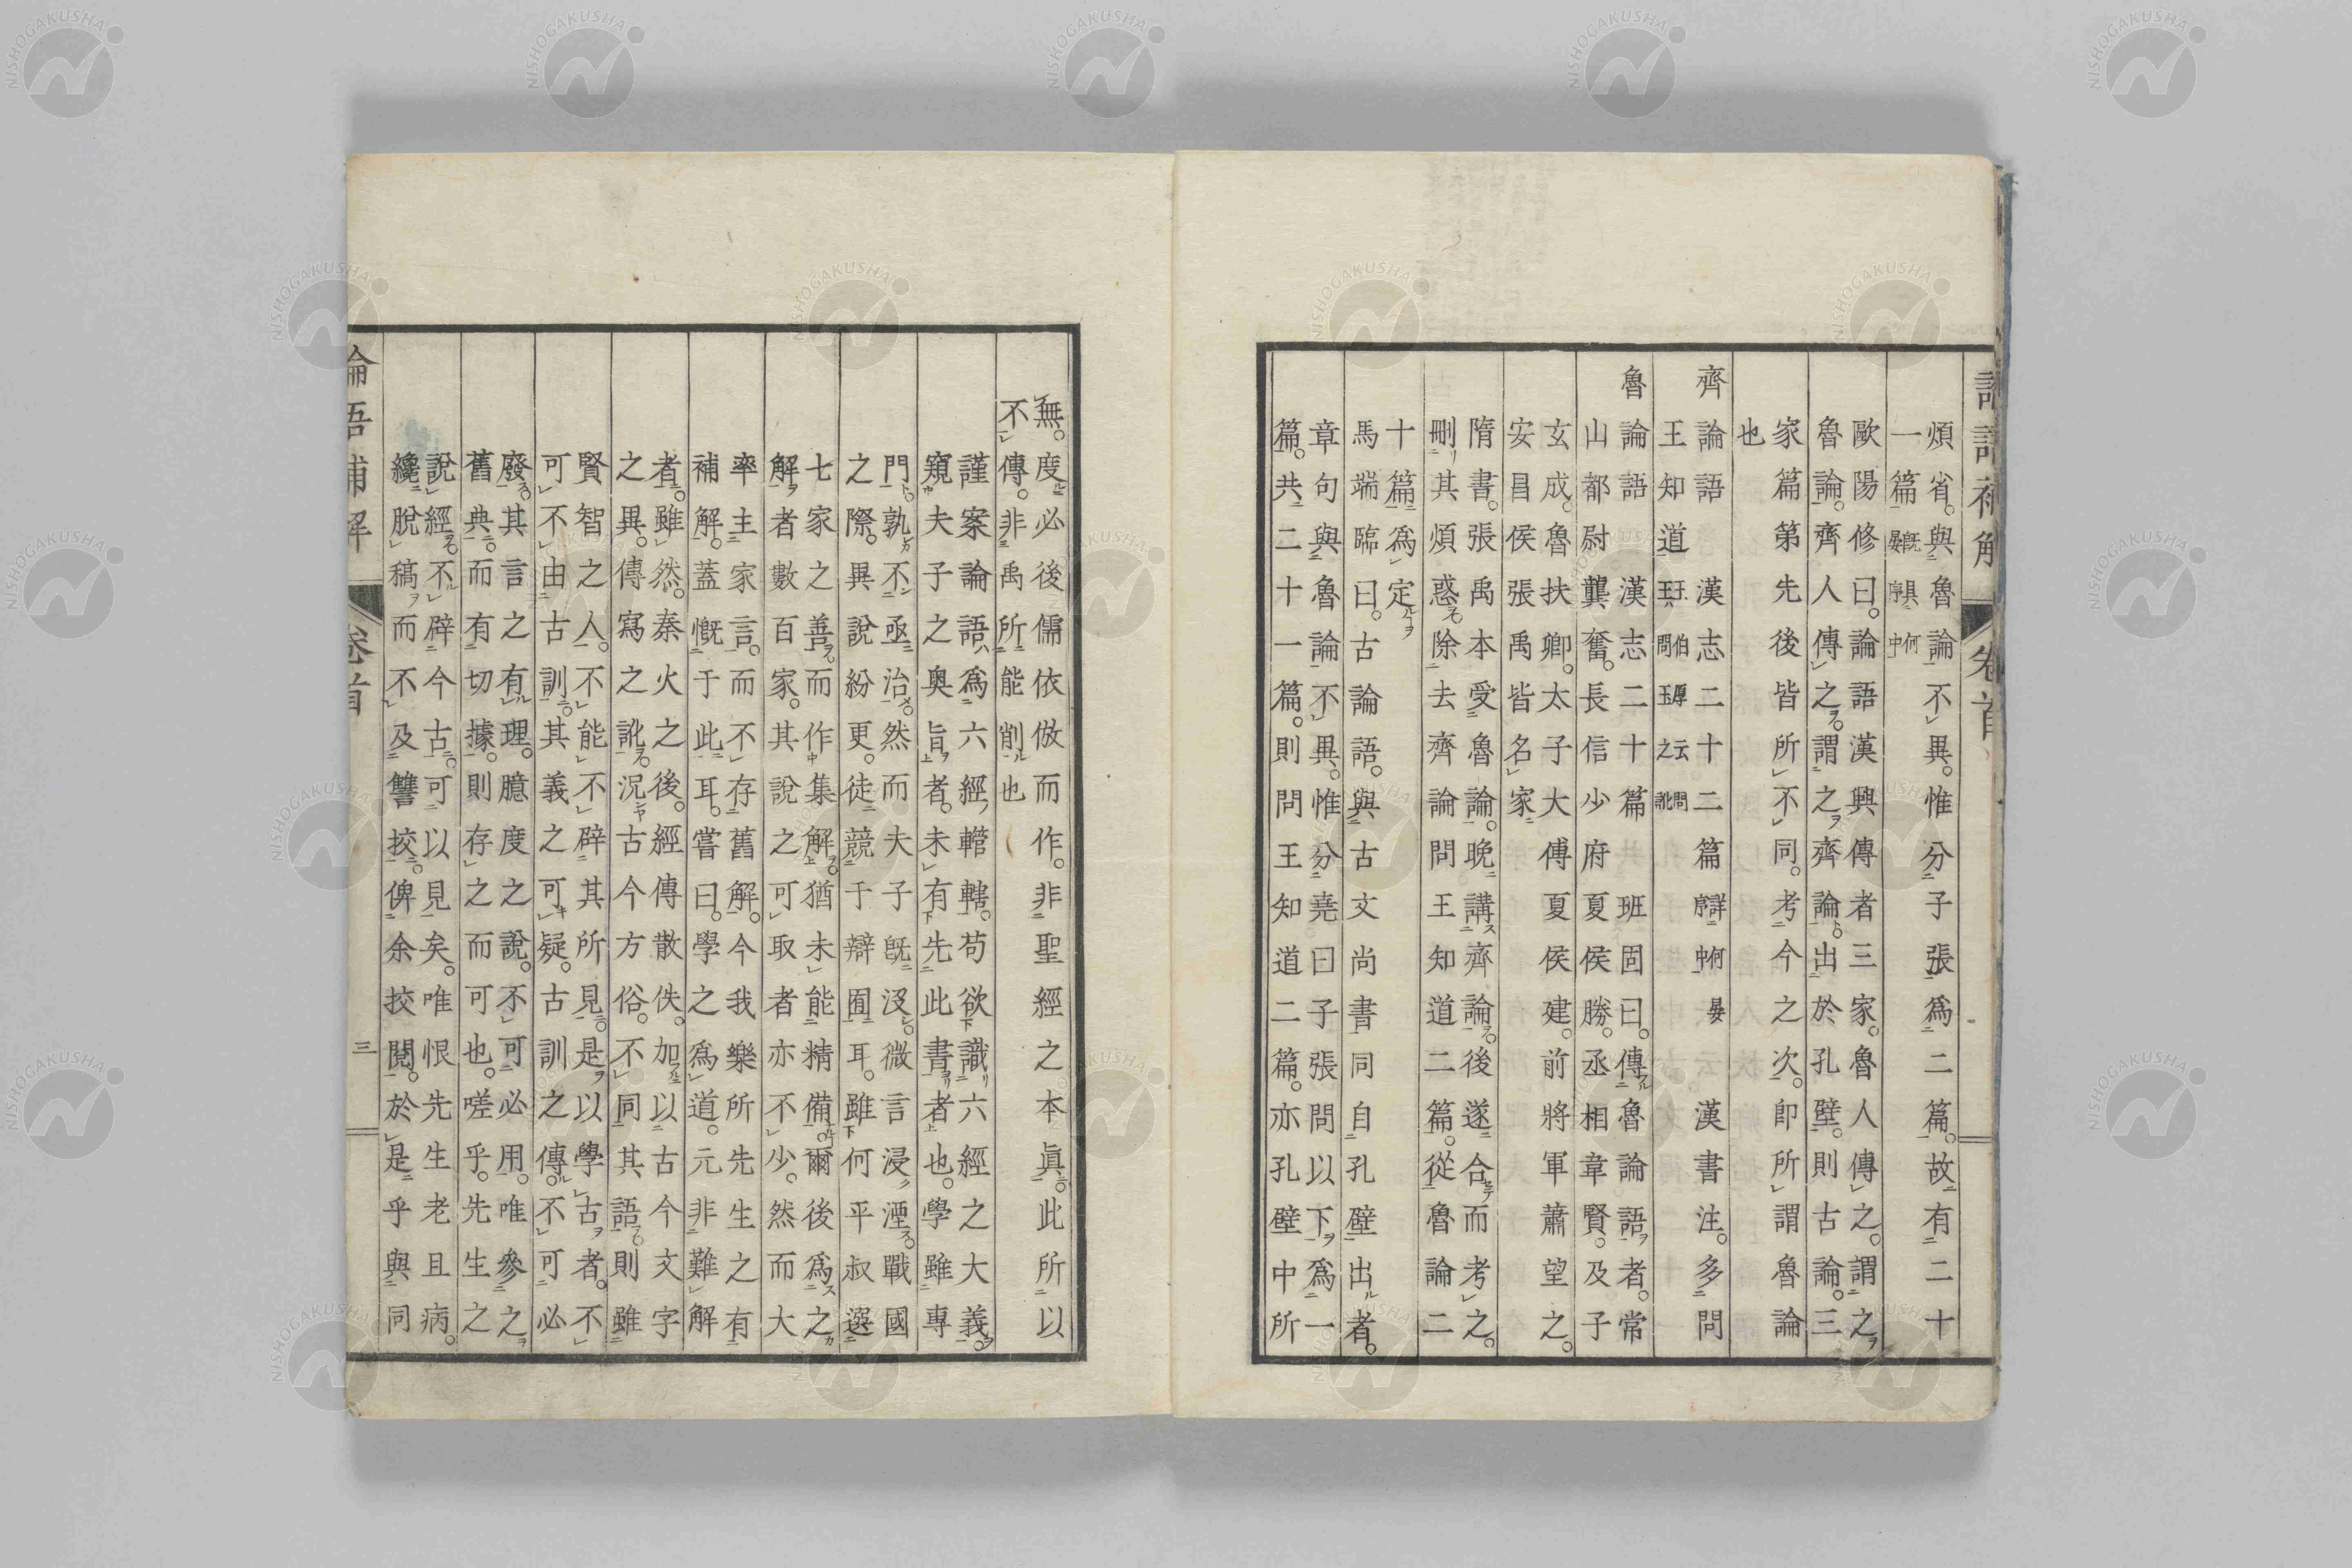 論語補解 卷首
煩省。與魯論不異。惟分子張爲二篇。故有二十
一篇 既具何晏序中
歐陽修曰。論語漢興傳者三家。魯人傳之。謂之
魯論。齊人傳之。謂之齊論。出於孔壁。則古論。三
家篇第先後皆所不同。考今之次。即所謂魯論
也
齊論語 漢志二十二篇 詳何晏序中 漢書注。多問
王知道 王伯厚云問王問玉之訛
魯論語 漢志二十篇 班固曰。傳魯論語者。常
山都尉龔奮。長信少府夏侯勝。丞相韋賢。及子
玄成。魯扶卿。太子大傅夏侯建。前將軍蕭望之。
安昌侯張禹皆名家
隋書。張禹本受魯論。晚講齊論。後遂合而考之。
刪其煩惑。除去齊論問王知道二篇。從魯論二
十篇爲定
馬端臨曰。古論語。與古文尚書同自孔壁出者。
章句與魯論不異。惟分堯曰子張問以下爲一
篇。共二十一篇。則問王知道二篇。亦孔壁中所
無。度必後儒依倣而作。非聖經之本眞。此所以
不傳。非禹所能削也
謹案論語爲六經轄轄。苟欲識六經之大義。
窺夫子之奧旨者。未有先此書者也。學雖專
門。孰不亟治。然而夫子既沒。微言浸湮。戰國
之際。異說紛更。徒競于辯囿耳。雖何平叔選
七家之善。而作集解。猶未能精備。爾後爲之
解者數百家。其說之可取者。亦不少。然而大
率主家言。而不存舊解。今我樂所先生之有
補解。蓋慨于此耳。嘗曰。學之爲道。元非難解
者。雖然。秦火之後。經傳散佚。加以古今文字
之異。傳寫之訛。況古今方俗。不同其語。則雖
賢智之人。不能不辟其所見。是以學古者。不
可不由古訓。其義之可疑。古訓之傳。不可必
廢。其言之有理。臆度之說。不可必用。唯參之
舊典。而有切據。則存之而可也。嗟乎。先生之
說經。不辟今古。可以見矣。唯恨先生老且病。
纔脫稿而不及讐挍。俾余挍閱。於是乎與同
論語補解 卷首 三
NISHOGAKUSHA